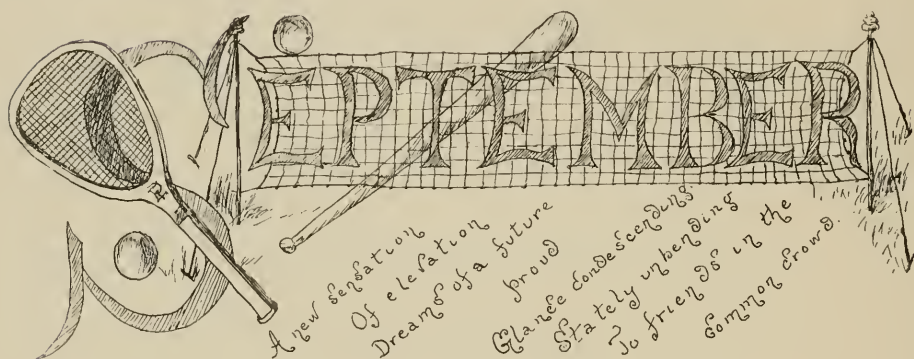 SEPTEMBER
A new sensation
Of elevation
Dreams of a future
proud
Glance condescending
Stately unbending
To friends in the
common crowd.